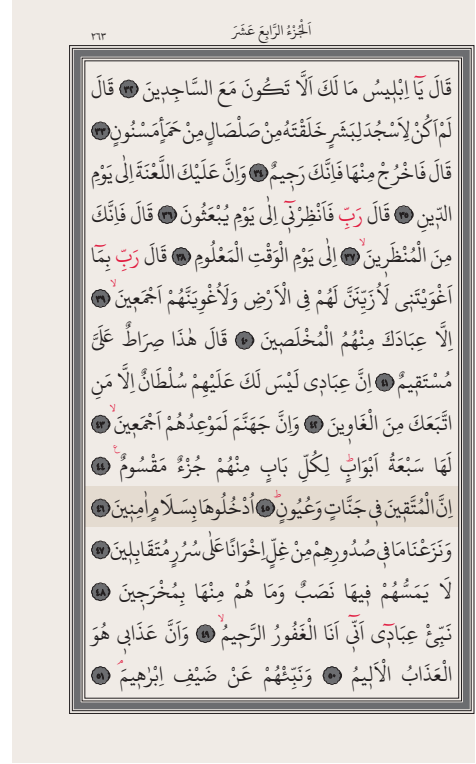 اَلْجُزْءُ الرَّابِعَ عَشَرَ
٢٦٣
قَالَ يَٓا اِبْلٖيسُ مَا لَكَ اَلَّا تَكُونَ مَعَ السَّاجِدٖينَ ٣٢ قَالَ
لَمْ اَكُنْ لِاَسْجُدَ لِبَشَرٍ خَلَقْتَهُ مِنْ صَلْصَالٍ مِنْ حَمَأٍ مَسْنُونٍ ٣٣
قَالَ فَاخْرُجْ مِنْهَا فَاِنَّكَ رَجٖيمٌ ٣٤ وَاِنَّ عَلَيْكَ اللَّعْنَةَ اِلٰى يَوْمِ
الدّٖينِ ٣٥ قَالَ رَبِّ فَاَنْظِرْنٖٓى اِلٰى يَوْمِ يُبْعَثُونَ ٣٦ قَالَ فَاِنَّكَ
مِنَ الْمُنْظَرٖينَۙ ٣٧ اِلٰى يَوْمِ الْوَقْتِ الْمَعْلُومِ ٣٨ قَالَ رَبِّ بِمَٓا
اَغْوَيْتَنٖى لَاُزَيِّنَنَّ لَهُمْ فِى الْاَرْضِ وَلَاُغْوِيَنَّهُمْ اَجْمَعٖينَۙ ٣٩
اِلَّا عِبَادَكَ مِنْهُمُ الْمُخْلَصٖينَ ٤٠ قَالَ هٰذَا صِرَاطٌ عَلَىَّ
مُسْتَقٖيمٌ ٤١ اِنَّ عِبَادٖى لَيْسَ لَكَ عَلَيْهِمْ سُلْطَانٌ اِلَّا مَنِ
اتَّبَعَكَ مِنَ الْغَاوٖينَ ٤٢ وَاِنَّ جَهَنَّمَ لَمَوْعِدُهُمْ اَجْمَعٖينَۙ ٤٣
لَهَا سَبْعَةُ اَبْوَابٍۜ لِكُلِّ بَابٍ مِنْهُمْ جُزْءٌ مَقْسُومٌࣖ ٤٤
اِنَّ الْمُتَّقٖينَ فٖى جَنَّاتٍ وَعُيُونٍۜ ٤٥ اُدْخُلُوهَا بِسَلَامٍ اٰمِنٖينَ ٤٦
وَنَزَعْنَا مَا فٖى صُدُورِهِمْ مِنْ غِلٍّ اِخْوَانًا عَلٰى سُرُرٍ مُتَقَابِلٖينَ ٤٧
لَا يَمَسُّهُمْ فٖيهَا نَصَبٌ وَمَا هُمْ مِنْهَا بِمُخْرَجٖينَ ٤٨
نَبِّئْ عِبَادٖٓى اَنّٖٓى اَنَا الْغَفُورُ الرَّحٖيمُۙ ٤٩ وَاَنَّ عَذَابٖى هُوَ
الْعَذَابُ الْاَلٖيمُ ٥٠ وَنَبِّئْهُمْ عَنْ ضَيْفِ اِبْرٰهٖيمَۢ ٥١